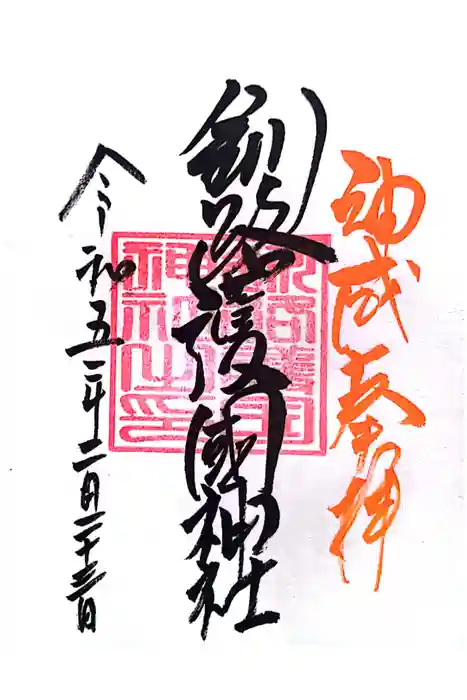 奉拝
釧路護國神社
釧路護国神社之印
令和五年二月二十三日